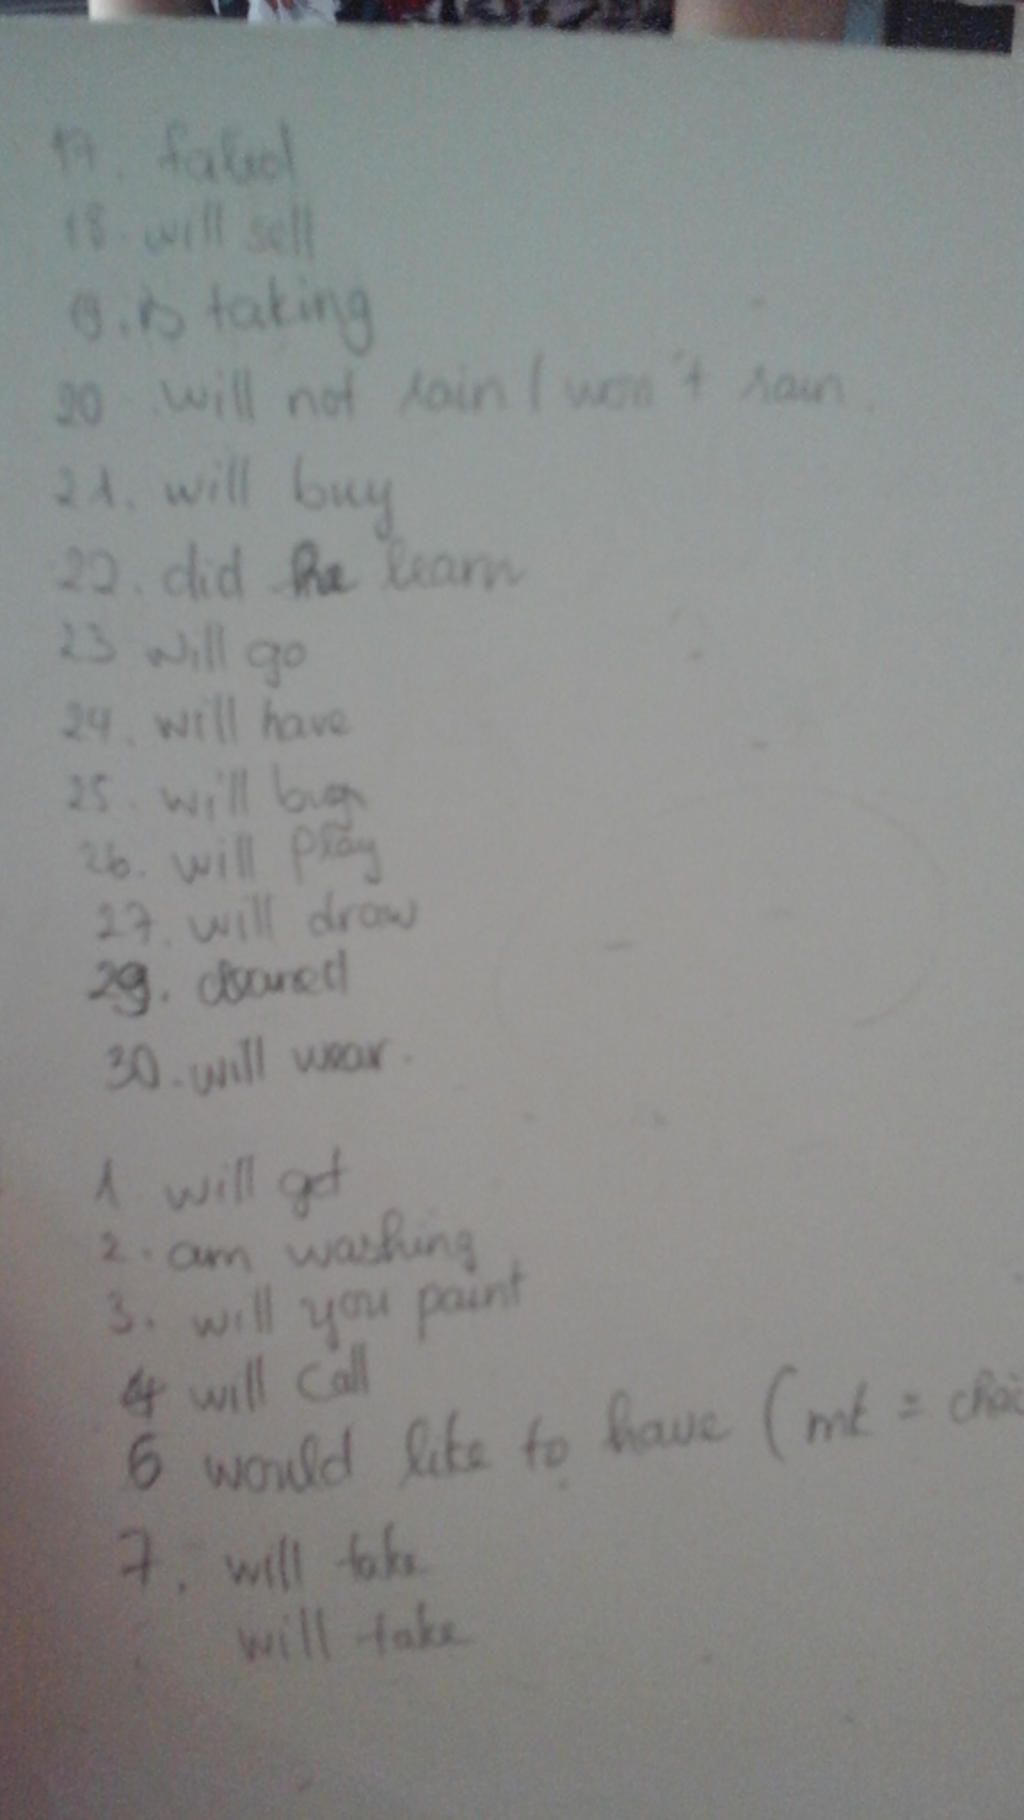 17. failed
18. will sell
19. is taking
20 will not rain / won't rain.
21. will buy
22. did he learn
23 will go
24. will have
25. will buy
26. will play
27. will draw
29. cleaned
30. will wear.
1 will get
2. am washing
3. will you paint
4 will call
6 would like to have (mk =
7. will take
will take